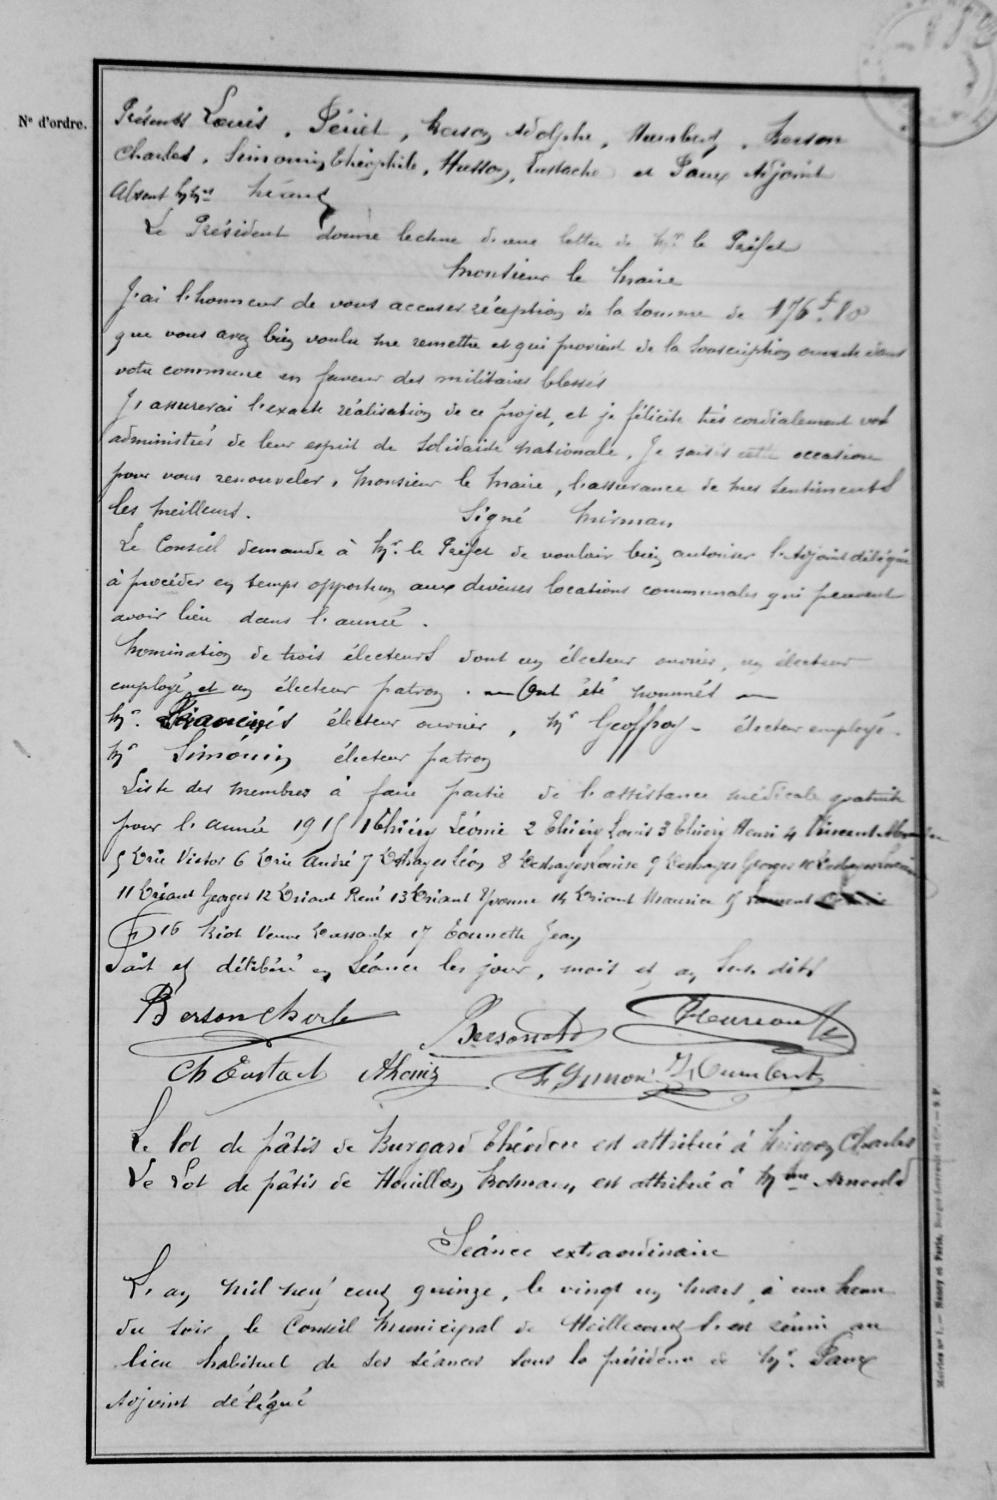 N° d'ordre.
Présents Louis, Périet, Berson Adolphe, Humbert, Berson
Charles, Simonin Théophile, Husson, Eustache et Paux Adjoint
Absent
Le Président donne lecture d'une lettre de Mr le Préfet
Monsieur le Maire
J'ai l'honneur de vous accuser réception de la somme de 176f.80
que vous avez bien voulu me remettre et qui provient de la souscription ouverte dans
votre commune en faveur des militaires blessés
J'assurerai l'exacte réalisation de ce projet, et je félicite très cordialement vos
administrés de leur esprit de solidarité nationale. Je saisis cette occasion
pour vous renouveler, Monsieur le Maire, l'assurance de mes sentiments
les meilleurs. Signé Mirman
Le Conseil demande à Mr. le Préfet de vouloir bien autoriser l'Adjoint délégué
à procéder en temps opportun aux diverses locations communales qui peuvent
avoir lieu dans l'année.
Nomination de trois électeurs dont un électeur ouvrier, un électeur
employé et un électeur patron. — Ont été nommés —
Mr. électeur ouvrier, Mr Geoffroy - électeur employé.
Mr Simonin électeur patron
Liste des membres à faire partie de l'assistance médicale gratuite
pour l'année 1915 1 Thiéry Léonie 2 Thiéry Louis 3 Thiéry Henri 4 Vincent
5 Brie Victor 6 Brie André 7 Deshayes Léon 8 Deshayes Louise 9 Deshayes Georges 10 Deshayes
11 Briant Georges 12 Briant René 13 Briant Yvonne 14 Briant Maurice 15 Laurent
16 Riot Veuve 17 Tounette Jean
Fait et délibéré en Séance les jour, mois et an sus dits
Berson Charle
Berson Ad
Ch Eustach T. Simoni H. Humbert
Le lot de pâtis de Burgard Théodore est attribué à Charles
Le Lot de pâtis de Houillon est attribué à Mme Arnould
Séance extraordinaire
L'an mil neuf cent quinze, le vingt un mars, à une heure
du soir, le Conseil Municipal de Heillecourt s'est réuni au
lieu habituel de ses séances sous la présidence de Mr. Paux
Adjoint délégué
Nancy et Paris, Berger-Levrault et Cie